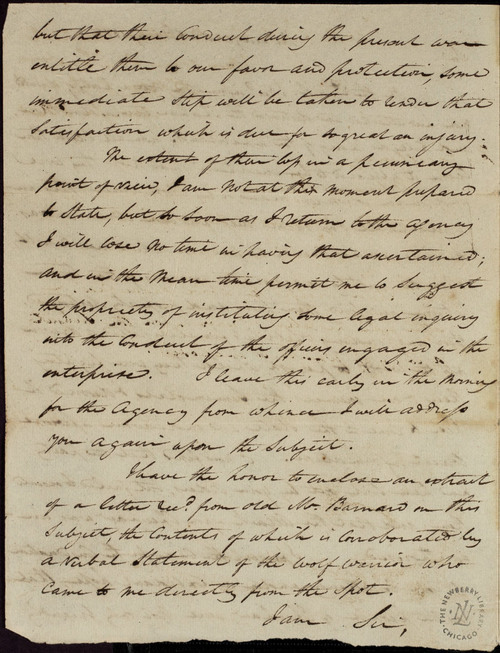 but that their Conduct during the present war
entitle them to our favor and protection, some
immediate step will be taken to render that
Satisfaction which is due for so great an injury.
The extent of their loss in a pecuniary
point of view, I am not at this moment prepared
to State, but so soon as I return to the Agency
I will lose no time in having that ascertained;
and in the mean time permit me to Suggest
the propriety of instituting some legal inquiry
into the Conduct of the officers engaged in the
enterprise. I leave this early in the morning
for the Agency from whence I will address
you again upon the Subject.
I have the honor to enclose an extract
of a letter recd. from old Mr. Barnard on this
Subject, the Contents of which is Corroborated by
a verbal Statement of the wolf warrior who
Came to me directly from the Spot.
I am Sir,
THE NEWBERRY LIBRARY
CHICAGO